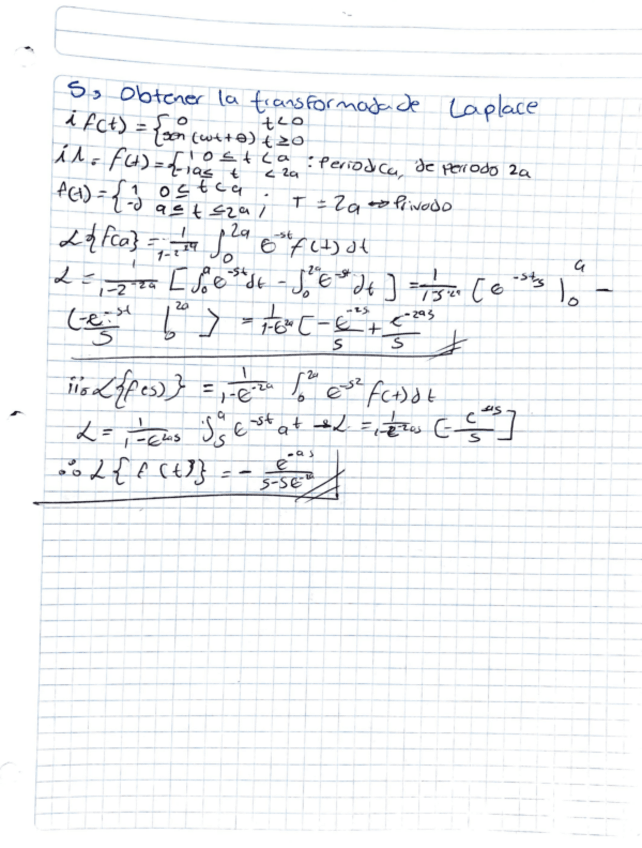 5, Obtener la transformada de Laplace
i f(t) = { 0 t<0
sen(ωt+θ) t≥0
ii. f(t) = { 1 0 ≤ t < a
-1 a≤ t < 2a : Periodica, de periodo 2a
f(t) = { 1 0 ≤ t < a
a ≤ t ≤ 2a ; T = 2a ⇒ Privodo
ℒ{f(a} = 1/1-2^-2a ∫₀^2a e^-st f(t) dt
ℒ = 1/1-2^-2a [ ∫₀^a e^-st dt - ∫₀^2a e^-st dt ] = [ e |₀^a -
(-e^-st/S |₀^2a ] = [ - e/S + e^-2as/S
iii. ℒ{f(s)} = 1/1-e^-2a ∫₀^2a e^-s2 f(t) dt
ℒ = 1/1-e^2as ∫_S^a e^-st dt → ℒ = [- /S ]
∴ ℒ{f(t)} = - e^-as/S-Se